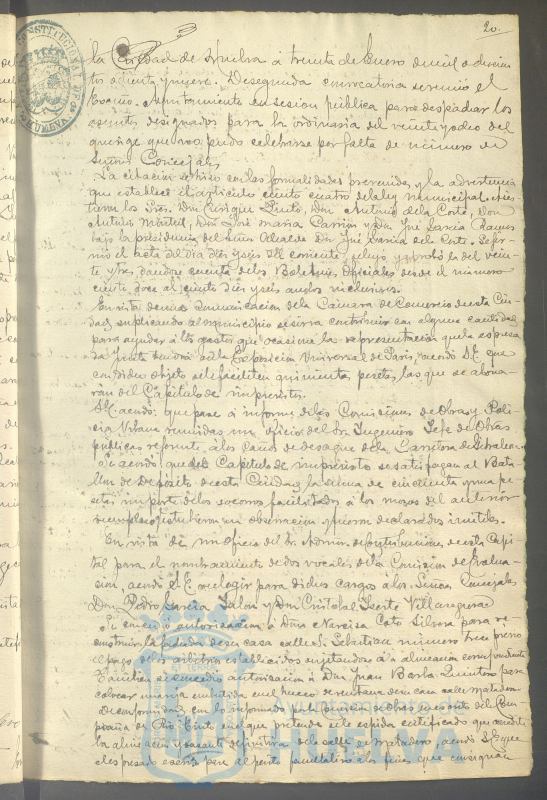 20.
la Ciudad de Huelva á treinta de Enero de mil ochocien
tos ochenta y nueve. De segunda convocatoria se reunió el
Excmo. Ayuntamiento en sesión pública para despachar los
asuntos designados para la ordinaria del veinte y ocho del
que rige que no pudo celebrarse por falta de número de
Señores Concejales.
La citación se hizo con las formalidades prevenidas y la advertencia
que establece el artículo ciento cuatro de la ley municipal. Asis
tieron los Sres. Don Enrique Pinto, Don Antonio de la Corte, Don
Antonio Montiel, Don José María Carrión y Don José García Ramos
bajo la presidencia del Señor Alcalde Don José García del Corte. Se fir
mó el acta del día diez y seis del corriente, se leyó y aprobó la del vein
te y tres, dándose cuenta de los Boletines Oficiales desde el número
ciento doce al ciento diez y seis ambos inclusives.
En vista de una comunicación de la Cámara de Comercio de esta Ciu
dad suplicando al municipio se sirva contribuir con alguna cantidad
para ayudar á los gastos que ocasione la representación que la expresa
da Junta tendrá en la Exposición Universal de Paris, acordó S.E. que
con dicho objeto se faciliten quinientas pesetas, las que se abona
rán del Capítulo de imprevistos.
S.E. acordó que pase á informe de las Comisiones de Obras y Poli
cía Urbana reunidas un oficio del Sr. Ingeniero Jefe de Obras
públicas referente á los caños de desagüe de la Carretera de Gibraleon.
Se acordó que del Capítulo de imprevistos se satisfagan al Bata
llón de Depósito de esta Ciudad la suma de cincuenta y una pe
setas importe de los socorros facilitados á los mozos del anterior
reemplazo que estuvieron en observación y fueron declarados inutiles.
En vista de un oficio del Sr. Admor. de Contribuciones de esta Capi
tal para el nombramiento de dos vocales de la Comisión de Evalua
ción, acordó S.E. elegir para dichos cargos á los Señores Concejales
Don Pedro García Jalon y Don Cristobal Iserte Villanueva
Se concedió autorización á Don Narciso Coto Silvera para re
construir la fachada de su casa calle S. Sebastian número trece previo
el pago de los arbitrios establecidos sujetándose á la alineación correspondiente
También se concedió autorización á Don Juan Barba Quintero para
colocar una reja embutida en el hueco de ventana de su casa calle matadero
De conformidad con lo informado por la Comisión de Obras en escrito de la Com
pañía de Rio-Tinto en el que pretende se le expida certificado que acredite
la alineación y rasante definitiva de la calle de Matadero, acordó S.E. que
el expresado escrito pase al perito facultativo á los fines que consignan
CONSTITUCIONAL DE
HUELVA
HUELVA